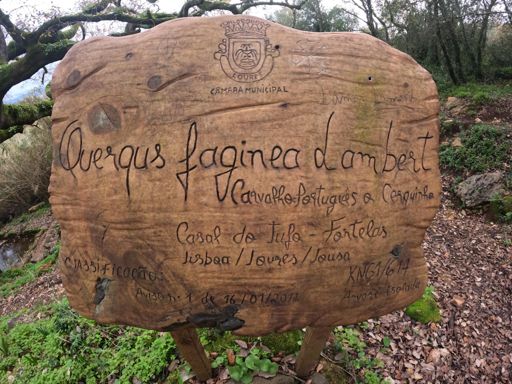 LOURES
CÂMARA MUNICIPAL
Quergus faginea Lambert
Carvalho-Português o Cerquinho
Casal do Tufo - Fortelas
Lisboa/Loures/Lousa
Classificação:
KNG1/614
Aviso nº 1 de 16/01/2012
Árvore Isolada